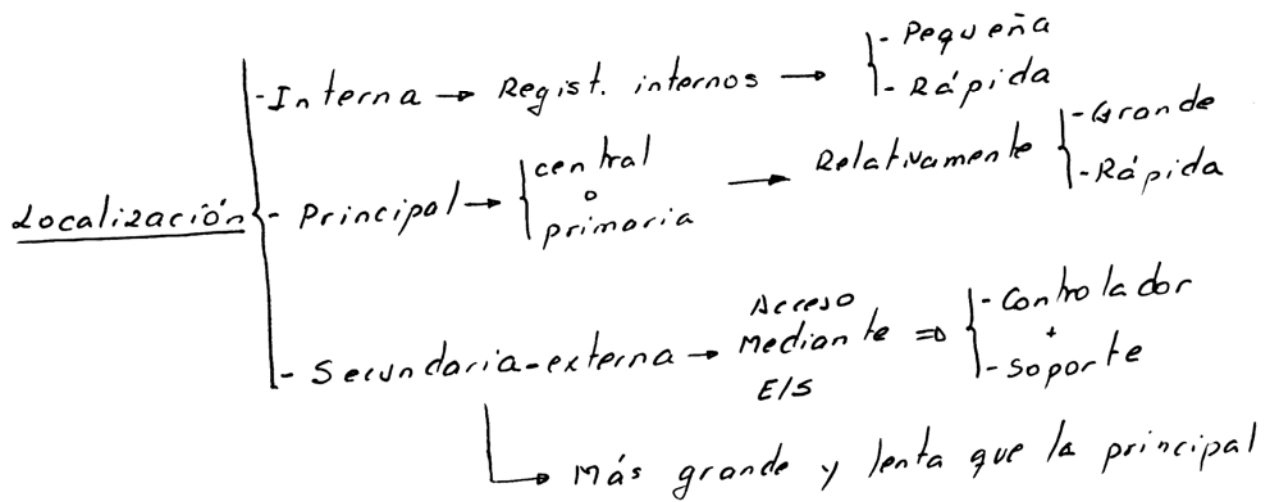 Localización
- Interna → Regist. internos → - Pequeña
- Rápida
- Principal → central
o
primaria
→ Relativamente - Grande
- Rápida
- Secundaria-externa → Acceso
Mediante
E/S
⇒ - Controlador
+
- Soporte
→ Más grande y lenta que la principal